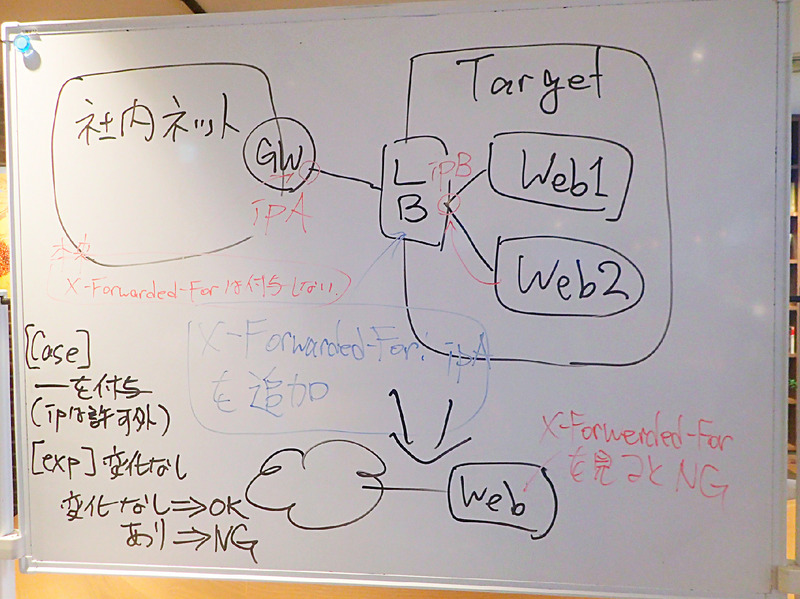 社内ネット
GW
ipA
Target
LB
ipB
Web1
Web2
本来
X-Forwarded-Forは付与しない
X-Forwarded-For: ipA
を追加
[Case]
ーを付与
(ipは許可外)
[exp] 変化なし
変化なし⇒OK
あり⇒NG
Web
X-Forwerded-For
を見るとNG